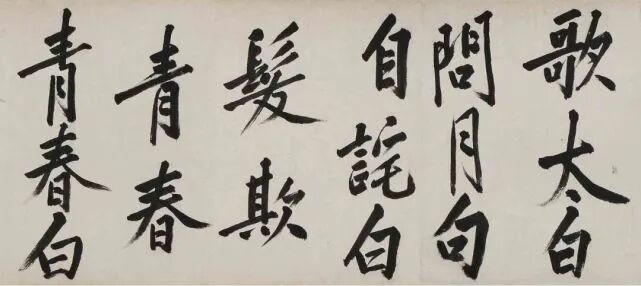 歌太白
問月句
自詫白
髮欺
青春
青春白